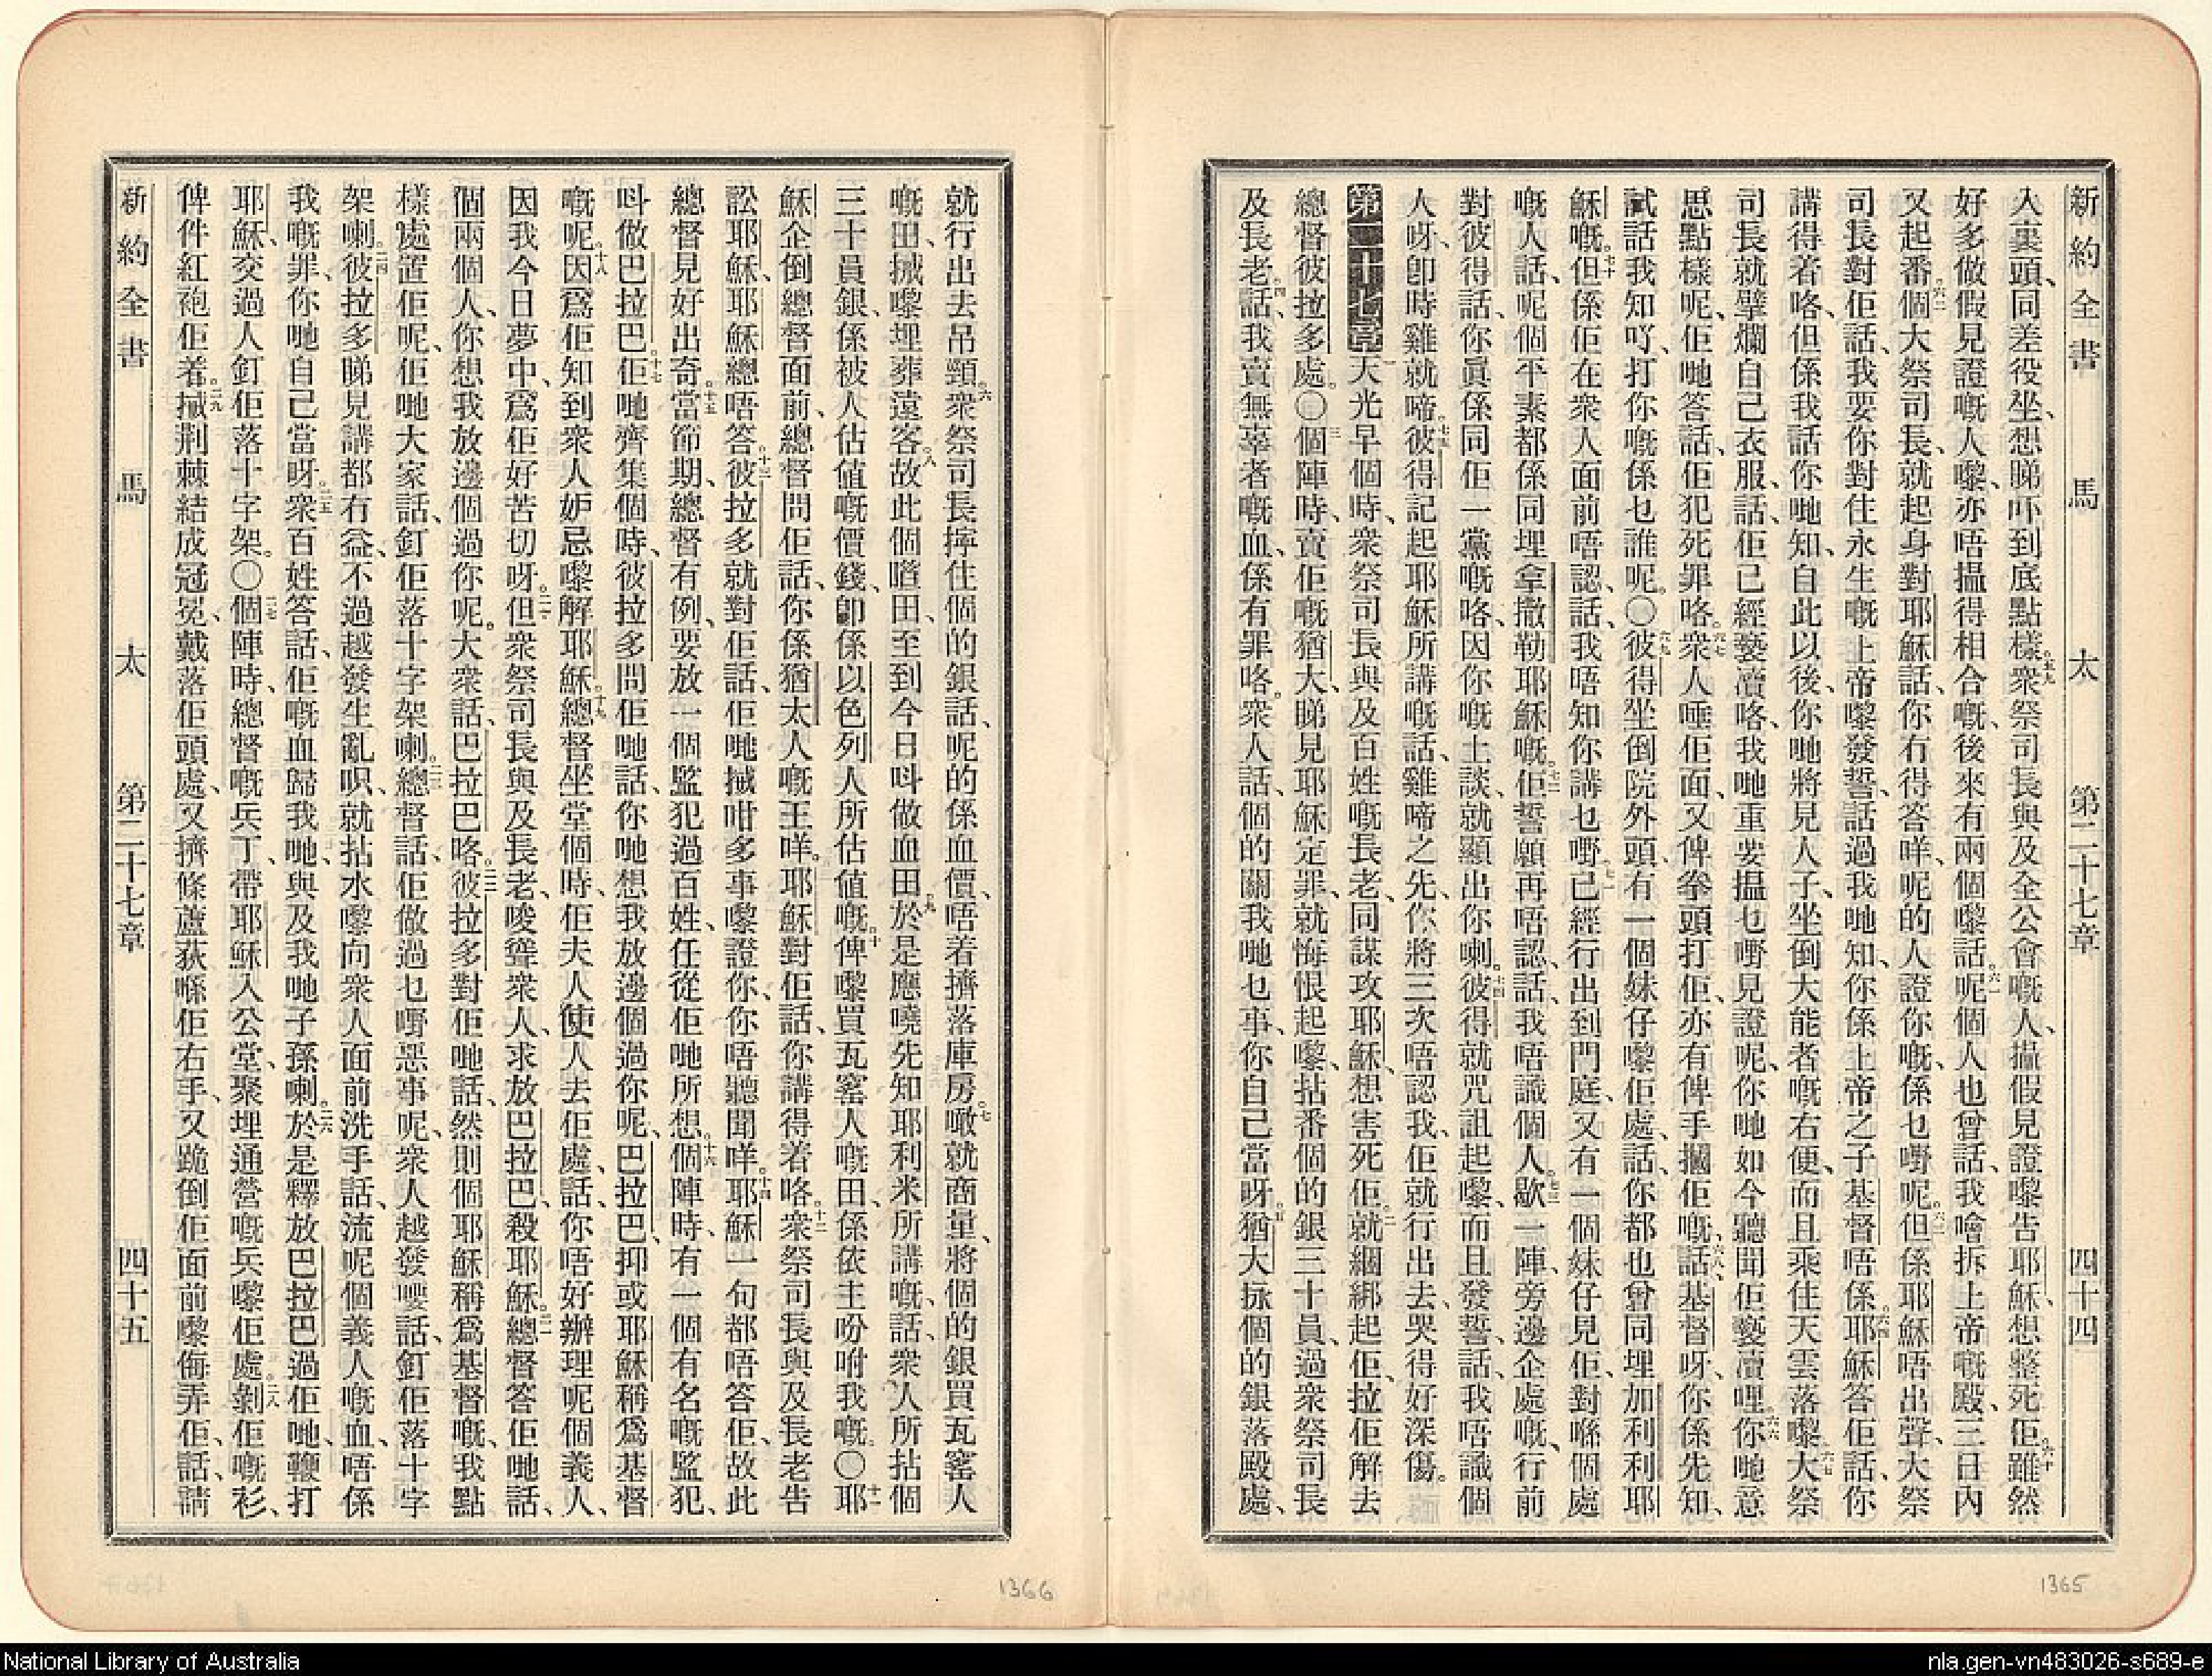 新約全書 馬太 第二十七章 四十四
入裏頭、同差役坐、想睇吓到底點樣。五九衆祭司長與及全公會嘅人、搵假見證嚟告耶穌、想整死佢。六十雖然
好多做假見證嘅人嚟、亦唔搵得相合嘅、後來有兩個嚟話。六一呢個人也曾話、我噲拆上帝嘅殿、三日內
又起番個。六二大祭司長、就起身對耶穌話、你冇得答咩、呢的人證你嘅、係乜嘢呢。六三但係耶穌唔出聲、大祭
司長對佢話、我要你對住永生嘅上帝嚟發誓、話過我哋知、你係上帝之子基督唔係。六四耶穌答佢話、你
講得着咯、但係我話你哋知、自此以後、你哋將見人子、坐倒大能者嘅右便、而且乘住天雲落嚟。六五大祭
司長就擘爛自己衣服、話、佢已經褻瀆咯、我哋重要搵乜嘢見證呢、你哋如今聽聞佢褻瀆哩。六六你哋意
思點樣呢、佢哋答話、佢犯死罪咯。六七衆人唾佢面、又俾拳頭打佢、亦有俾手摑佢嘅、六八話、基督呀、你係先知、
試話我知吖、打你嘅係乜誰呢。〇六九彼得坐倒院外頭、有一個妹仔嚟佢處、話、你都也曾同埋加利利耶
穌嘅。七十但係佢在衆人面前唔認、話、我唔知你講乜嘢。七一已經行出到門庭、又有一個妹仔見佢、對喺個處
嘅人話、呢個平素都係同埋拿撒勒耶穌嘅。七二佢誓願再唔認、話、我唔識個人。七三歇一陣、旁邊企處嘅、行前
對彼得話、你眞係同佢一黨嘅咯、因你嘅土談、就顯出你喇。七四彼得就咒詛起嚟、而且發誓、話、我唔識個
人呀、卽時雞就啼。七五彼得記起耶穌所講嘅話、雞啼之先、你將三次唔認我、佢就行出去、哭得好深傷。
第二十七章 一天光早個時、衆祭司長與及百姓嘅長老、同謀攻耶穌、想害死佢。二就綑綁起佢、拉佢解去
總督彼拉多處。〇三個陣時、賣佢嘅猶大、睇見耶穌定罪、就悔恨起嚟、拈番個的銀三十員、過衆祭司長
及長老。四話、我賣無辜者嘅血、係有罪咯。衆人話、個的關我哋乜事、你自己當呀。五猶大掁個的銀落殿處、
就行出去吊頸。六衆祭司長擰住個的銀、話、呢的係血價、唔着擠落庫房。七噉就商量、將個的銀買瓦窰人
嘅田、搣嚟埋葬遠客。八故此個噠田、至到今日呌做血田。九於是應嘵先知耶利米所講嘅、話、衆人所拈個
三十員銀、係被人估值嘅價錢、卽係以色列人所估值嘅。十俾嚟買瓦窰人嘅田、係依主吩咐我嘅。〇十一耶
穌企倒總督面前、總督問佢話、你係猶太人嘅王咩。耶穌對佢話、你講得着咯。十二衆祭司長與及長老告
訟耶穌、耶穌總唔答。十三彼拉多就對佢話、佢哋搣咁多事嚟證你、你唔聽聞咩。十四耶穌一句都唔答佢、故此
總督見好出奇。十五當節期、總督有例、要放一個監犯過百姓、任從佢哋所想。十六個陣時、有一個有名嘅監犯、
呌做巴拉巴。十七佢哋齊集個時、彼拉多問佢哋話、你哋想我放邊個過你呢、巴拉巴、抑或耶穌稱爲基督
嘅呢。十八因爲佢知到衆人妒忌嚟解耶穌。十九總督坐堂個時、佢夫人使人去佢處、話、你唔好辦理呢個義人、
因我今日夢中、爲佢好苦切呀。二十但衆祭司長與及長老、唆聳衆人、求放巴拉巴、殺耶穌。二一總督答佢哋話、
個兩個人、你想我放邊個過你呢。大衆話、巴拉巴咯。二二彼拉多對佢哋話、然則個耶穌稱爲基督嘅、我點
樣處置佢呢、佢哋大家話、釘佢落十字架喇。二三總督話、佢做過乜嘢惡事呢、衆人越發嘤話、釘佢落十字
架喇。二四彼拉多睇見講都冇益、不過越發生亂呮、就拈水嚟向衆人面前洗手、話、流呢個義人嘅血、唔係
我嘅罪、你哋自己當呀。二五衆百姓答話、佢嘅血歸我哋、與及我哋子孫喇。二六於是釋放巴拉巴過佢哋、鞭打
耶穌、交過人釘佢落十字架。〇二七個陣時、總督嘅兵丁、帶耶穌入公堂、聚埋通營嘅兵嚟佢處。二八剝佢嘅衫、
俾件紅袍佢着。二九搣荆棘結成冠冕、戴落佢頭處、又擠條蘆荻喺佢右手、又跪倒佢面前嚟侮弄佢、話、請
新約全書 馬太 第二十七章 四十五
1366
1365
National Library of Australia
nla.gen-vn483026-s689-e